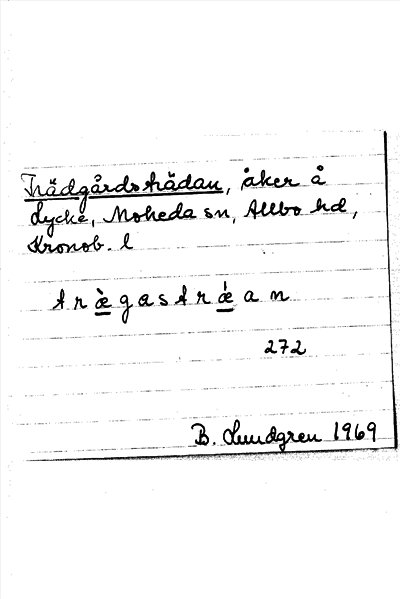 Trädgårdsträdan, åker å
Lycke, Moheda sn, Allbo hd,
Kronob. l
t r æ̀ g a s t r ǽ a n
272
B. Lundgren 1969